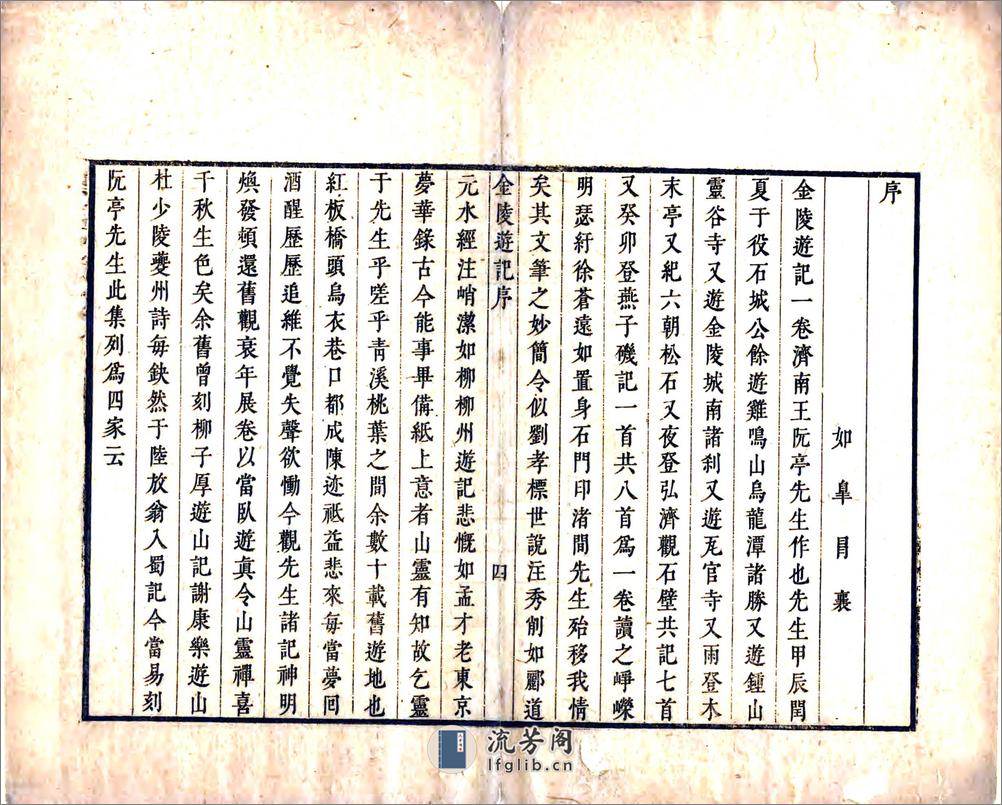 序
如皐冒襄
金陵遊記一卷濟南王阮亭先生作也先生甲辰閏
夏于役石城公餘遊雞鳴山烏龍潭諸勝又遊鍾山
靈谷寺又遊金陵城南諸刹又遊瓦官寺又雨登木
末亭又紀六朝松石又夜登弘濟觀石壁共記七首
又癸卯登燕子磯記一首共八首爲一卷讀之崢嶸
明瑟紆徐蒼遠如置身石門印渚間先生殆移我情
矣其文筆之妙簡令似劉孝標世說注秀削如酈道
金陵遊記序 四
元水經注峭潔如柳柳州遊記悲慨如孟才老東京
夢華錄古今能事畢備紙上意者山靈有知故乞靈
于先生乎嗟乎靑溪桃葉之間余數十載舊遊地也
紅板橋頭烏衣巷口都成陳迹祗益悲來每當夢回
酒醒歷歷追維不覺失聲欲慟今觀先生諸記神明
煥發頓還舊觀衰年展卷以當臥遊眞令山靈禪喜
千秋生色矣余舊曾刻柳子厚遊山記謝康樂遊山
杜少陵夔州詩每缺然于陸放翁入蜀記今當易刻
阮亭先生此集列爲四家云
流芳阁
lfglib.cn